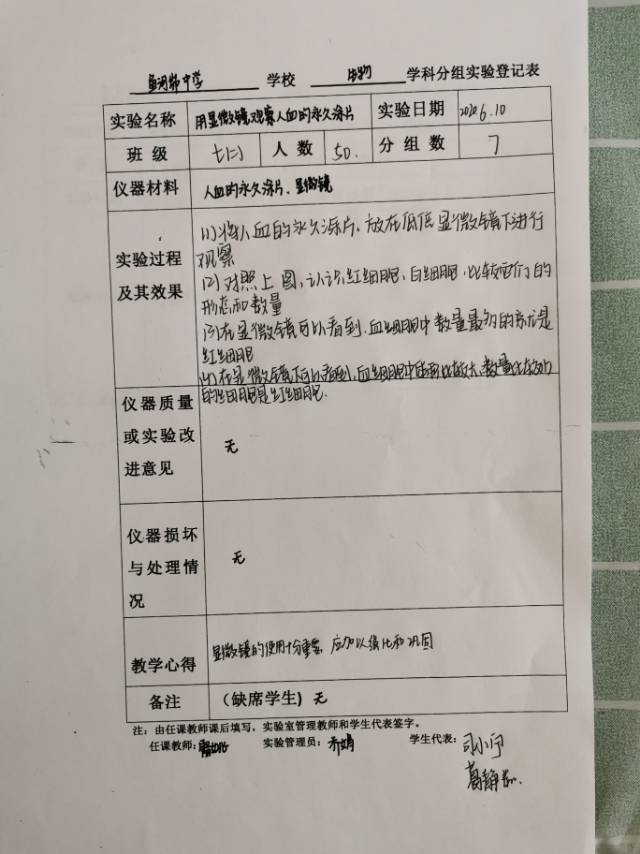 中学 学校 生物 学科分组实验登记表
实验名称 用显微镜观察人血的永久涂片 实验日期 6.10
班级 七(二) 人数 50. 分组数 7
仪器材料 人血的永久涂片、显微镜
实验过程及其效果 (1)将人血的永久涂片,放在低倍显微镜下进行
观察
(2)对照上图,认识红细胞,白细胞,比较它们的
形态和数量
(3)在显微镜可以看到,血细胞中数量最多的就是
红细胞
(4)在显微镜下可以看到,血细胞中 比较大,数量比较
的细胞是红细胞.
仪器质量或实验改进意见 无
仪器损坏与处理情况 无
教学心得 显微镜的使用十分重要,应加以强化和巩固
备注 (缺席学生) 无
注:由任课教师课后填写,实验室管理教师和学生代表签字。
任课教师: 实验管理员:乔娟 学生代表: